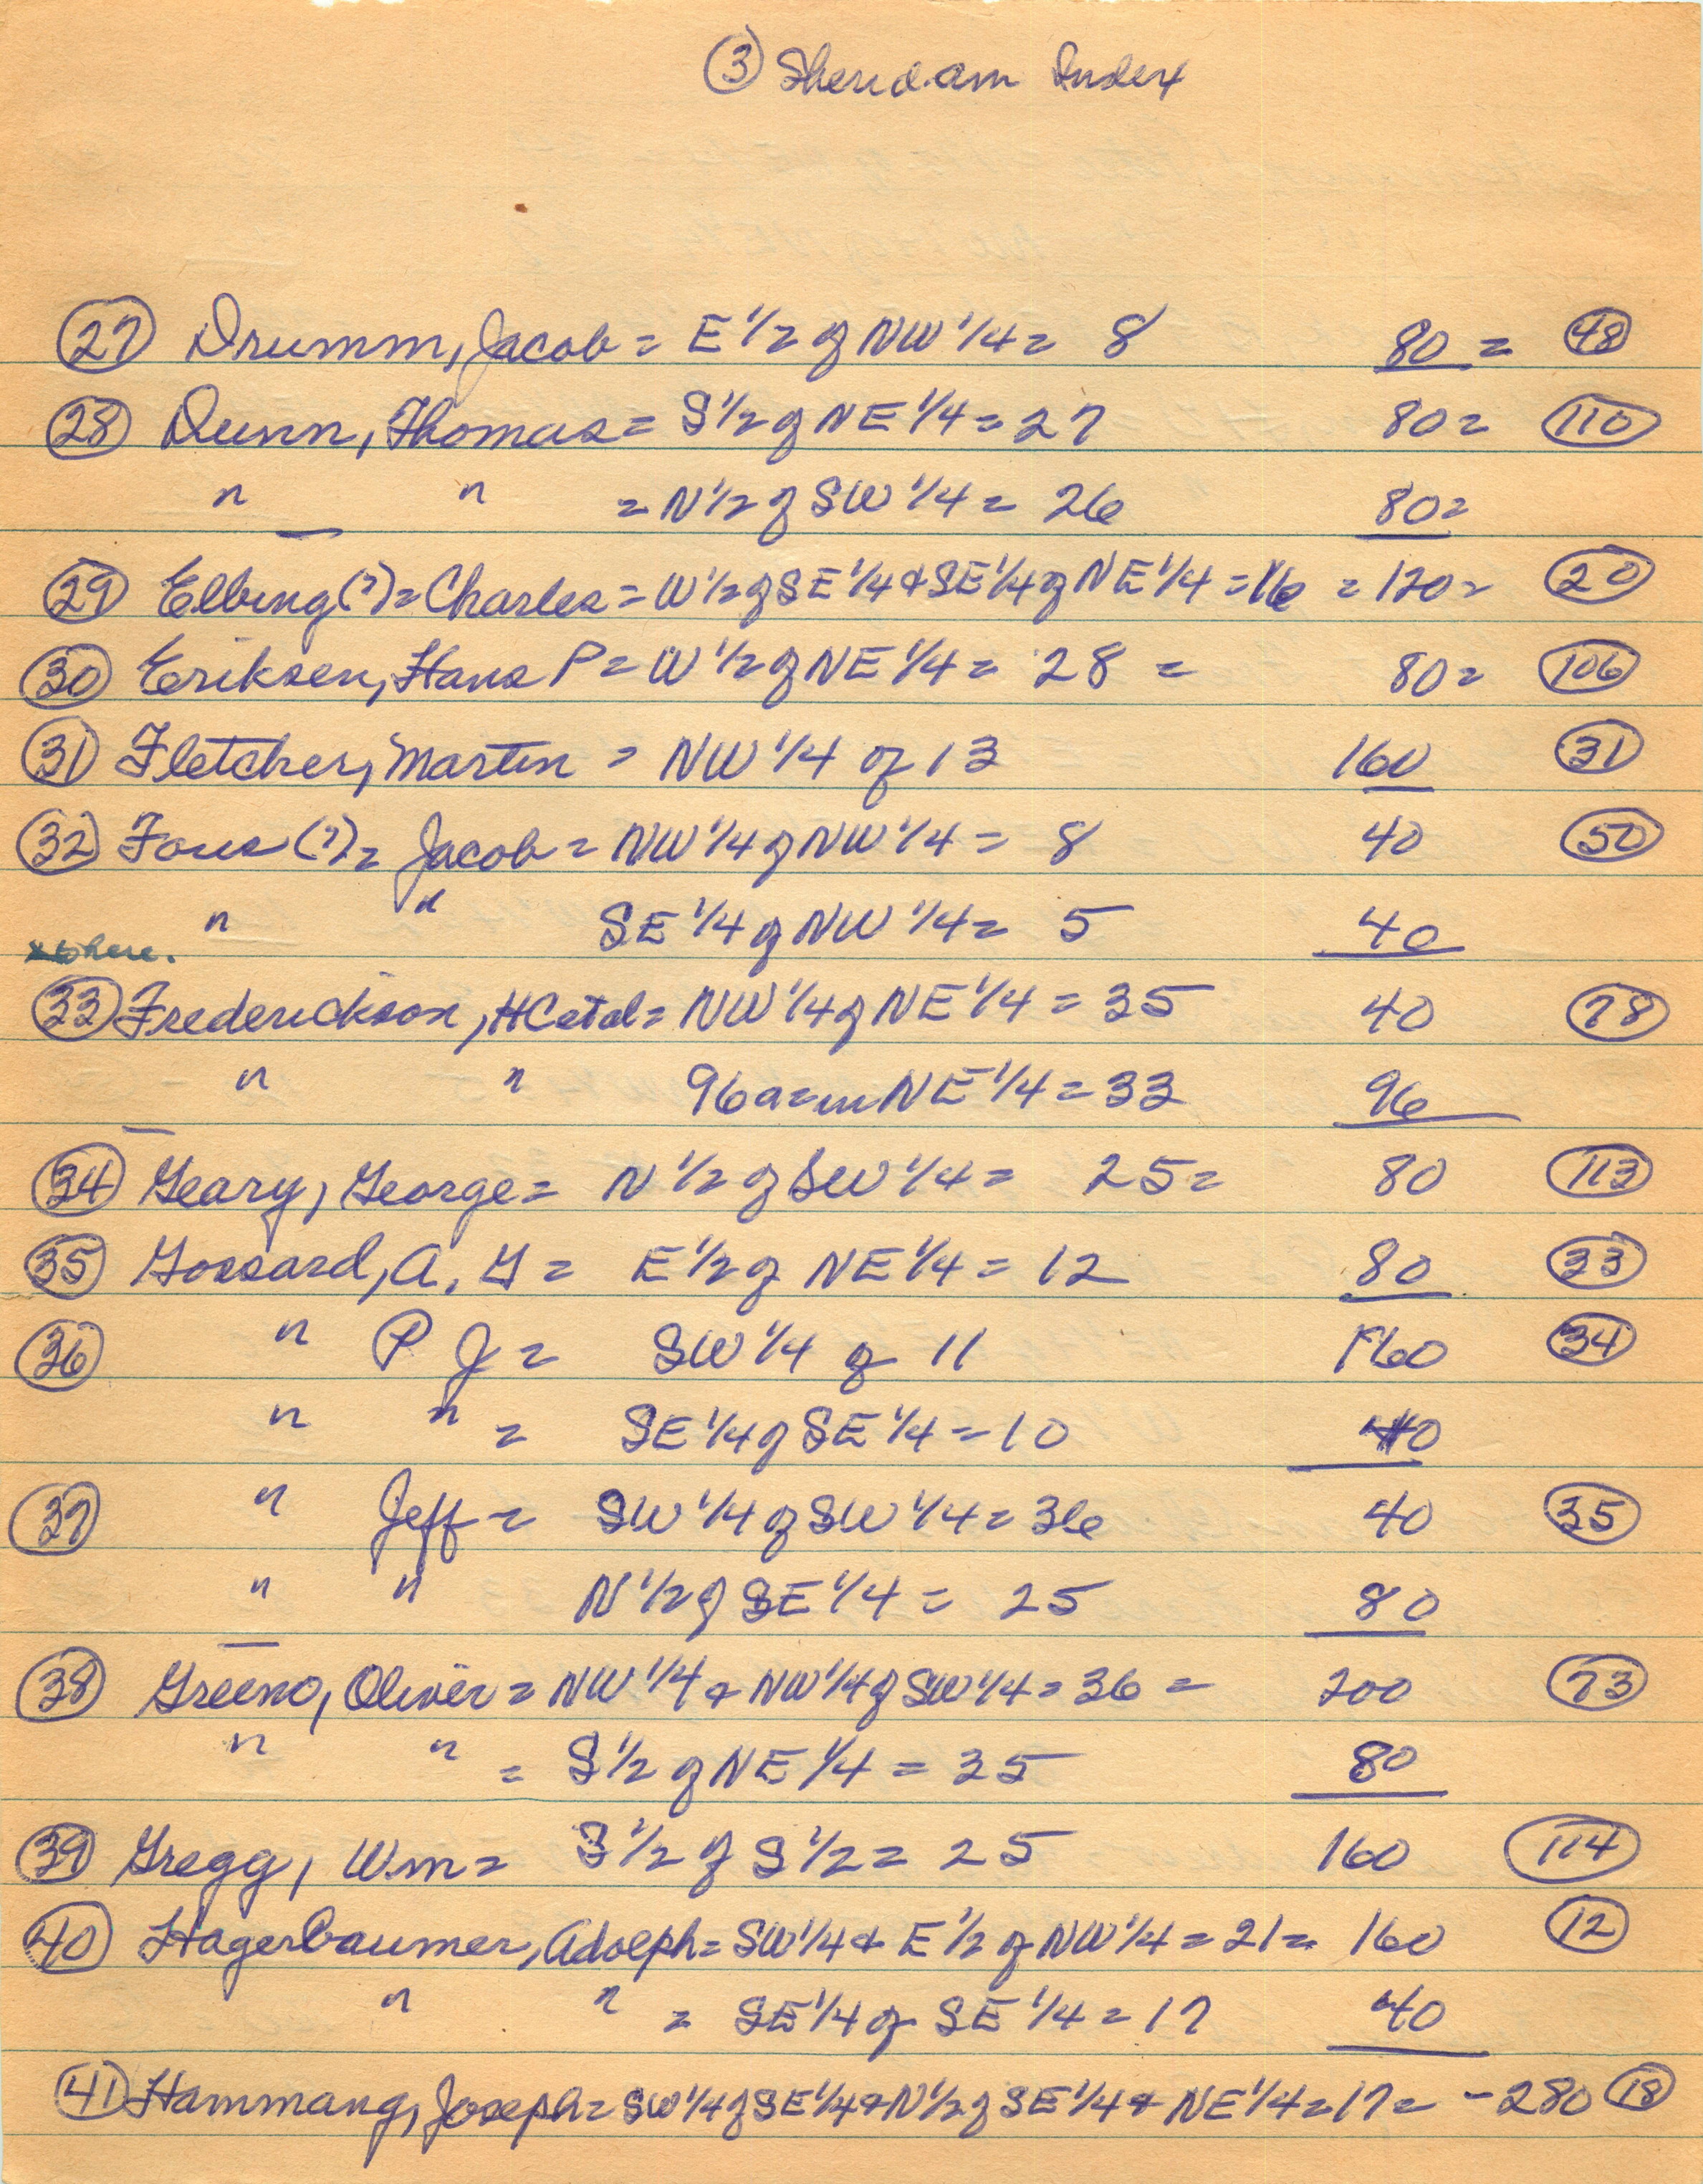 ③ Sheridan Index
㉗ Drumm, Jacob = E 1/2 of NW 1/4 = 8 80 = ㊽
㉘ Dunn, Thomas = S 1/2 of NE 1/4 = 27 80 = (110)
" " = N 1/2 of SW 1/4 = 26 80 =
㉙ Elbing (?) = Charles = W 1/2 of SE 1/4 & SE 1/4 of NE 1/4 = 16 = 120 = ⑳
㉚ Eriksen, Hans P = W 1/2 of NE 1/4 = 28 = 80 = (106)
㉛ Fletcher, Martin = NW 1/4 of 13 160 ㉛
㉜ Fous (?) = Jacob = NW 1/4 of NW 1/4 = 8 40 ㊿
" " SE 1/4 of NW 1/4 = 5 40
here.
㉝ Frederickson, HC etal = NW 1/4 of NE 1/4 = 35 40 (78)
" " 96a = in NE 1/4 = 33 96
㉞ Geary, George = N 1/2 of SW 1/4 = 25 = 80 (113)
㉟ Gossard, A. G = E 1/2 of NE 1/4 = 12 80 ㉝
㊱ " P J = SW 1/4 of 11 160 ㉞
" " = SE 1/4 of SE 1/4 = 10 40
㊲ " Jeff = SW 1/4 of SW 1/4 = 36 40 ㉟
" " N 1/2 of SE 1/4 = 25 80
㊳ Greeno, Oliver = NW 1/4 & NW 1/4 of SW 1/4 = 36 = 200 (73)
" " = S 1/2 of NE 1/4 = 35 80
㊴ Gregg, Wm = S 1/2 of S 1/2 = 25 160 (114)
㊵ Hagerbaumer, Adolph = SW 1/4 & E 1/2 of NW 1/4 = 21 = 160 ⑫
" " = SE 1/4 of SE 1/4 = 17 40
㊶ Hammang, Joseph = SW 1/4 of SE 1/4 & N 1/2 of SE 1/4 & NE 1/4 = 17 = - 280 ⑱